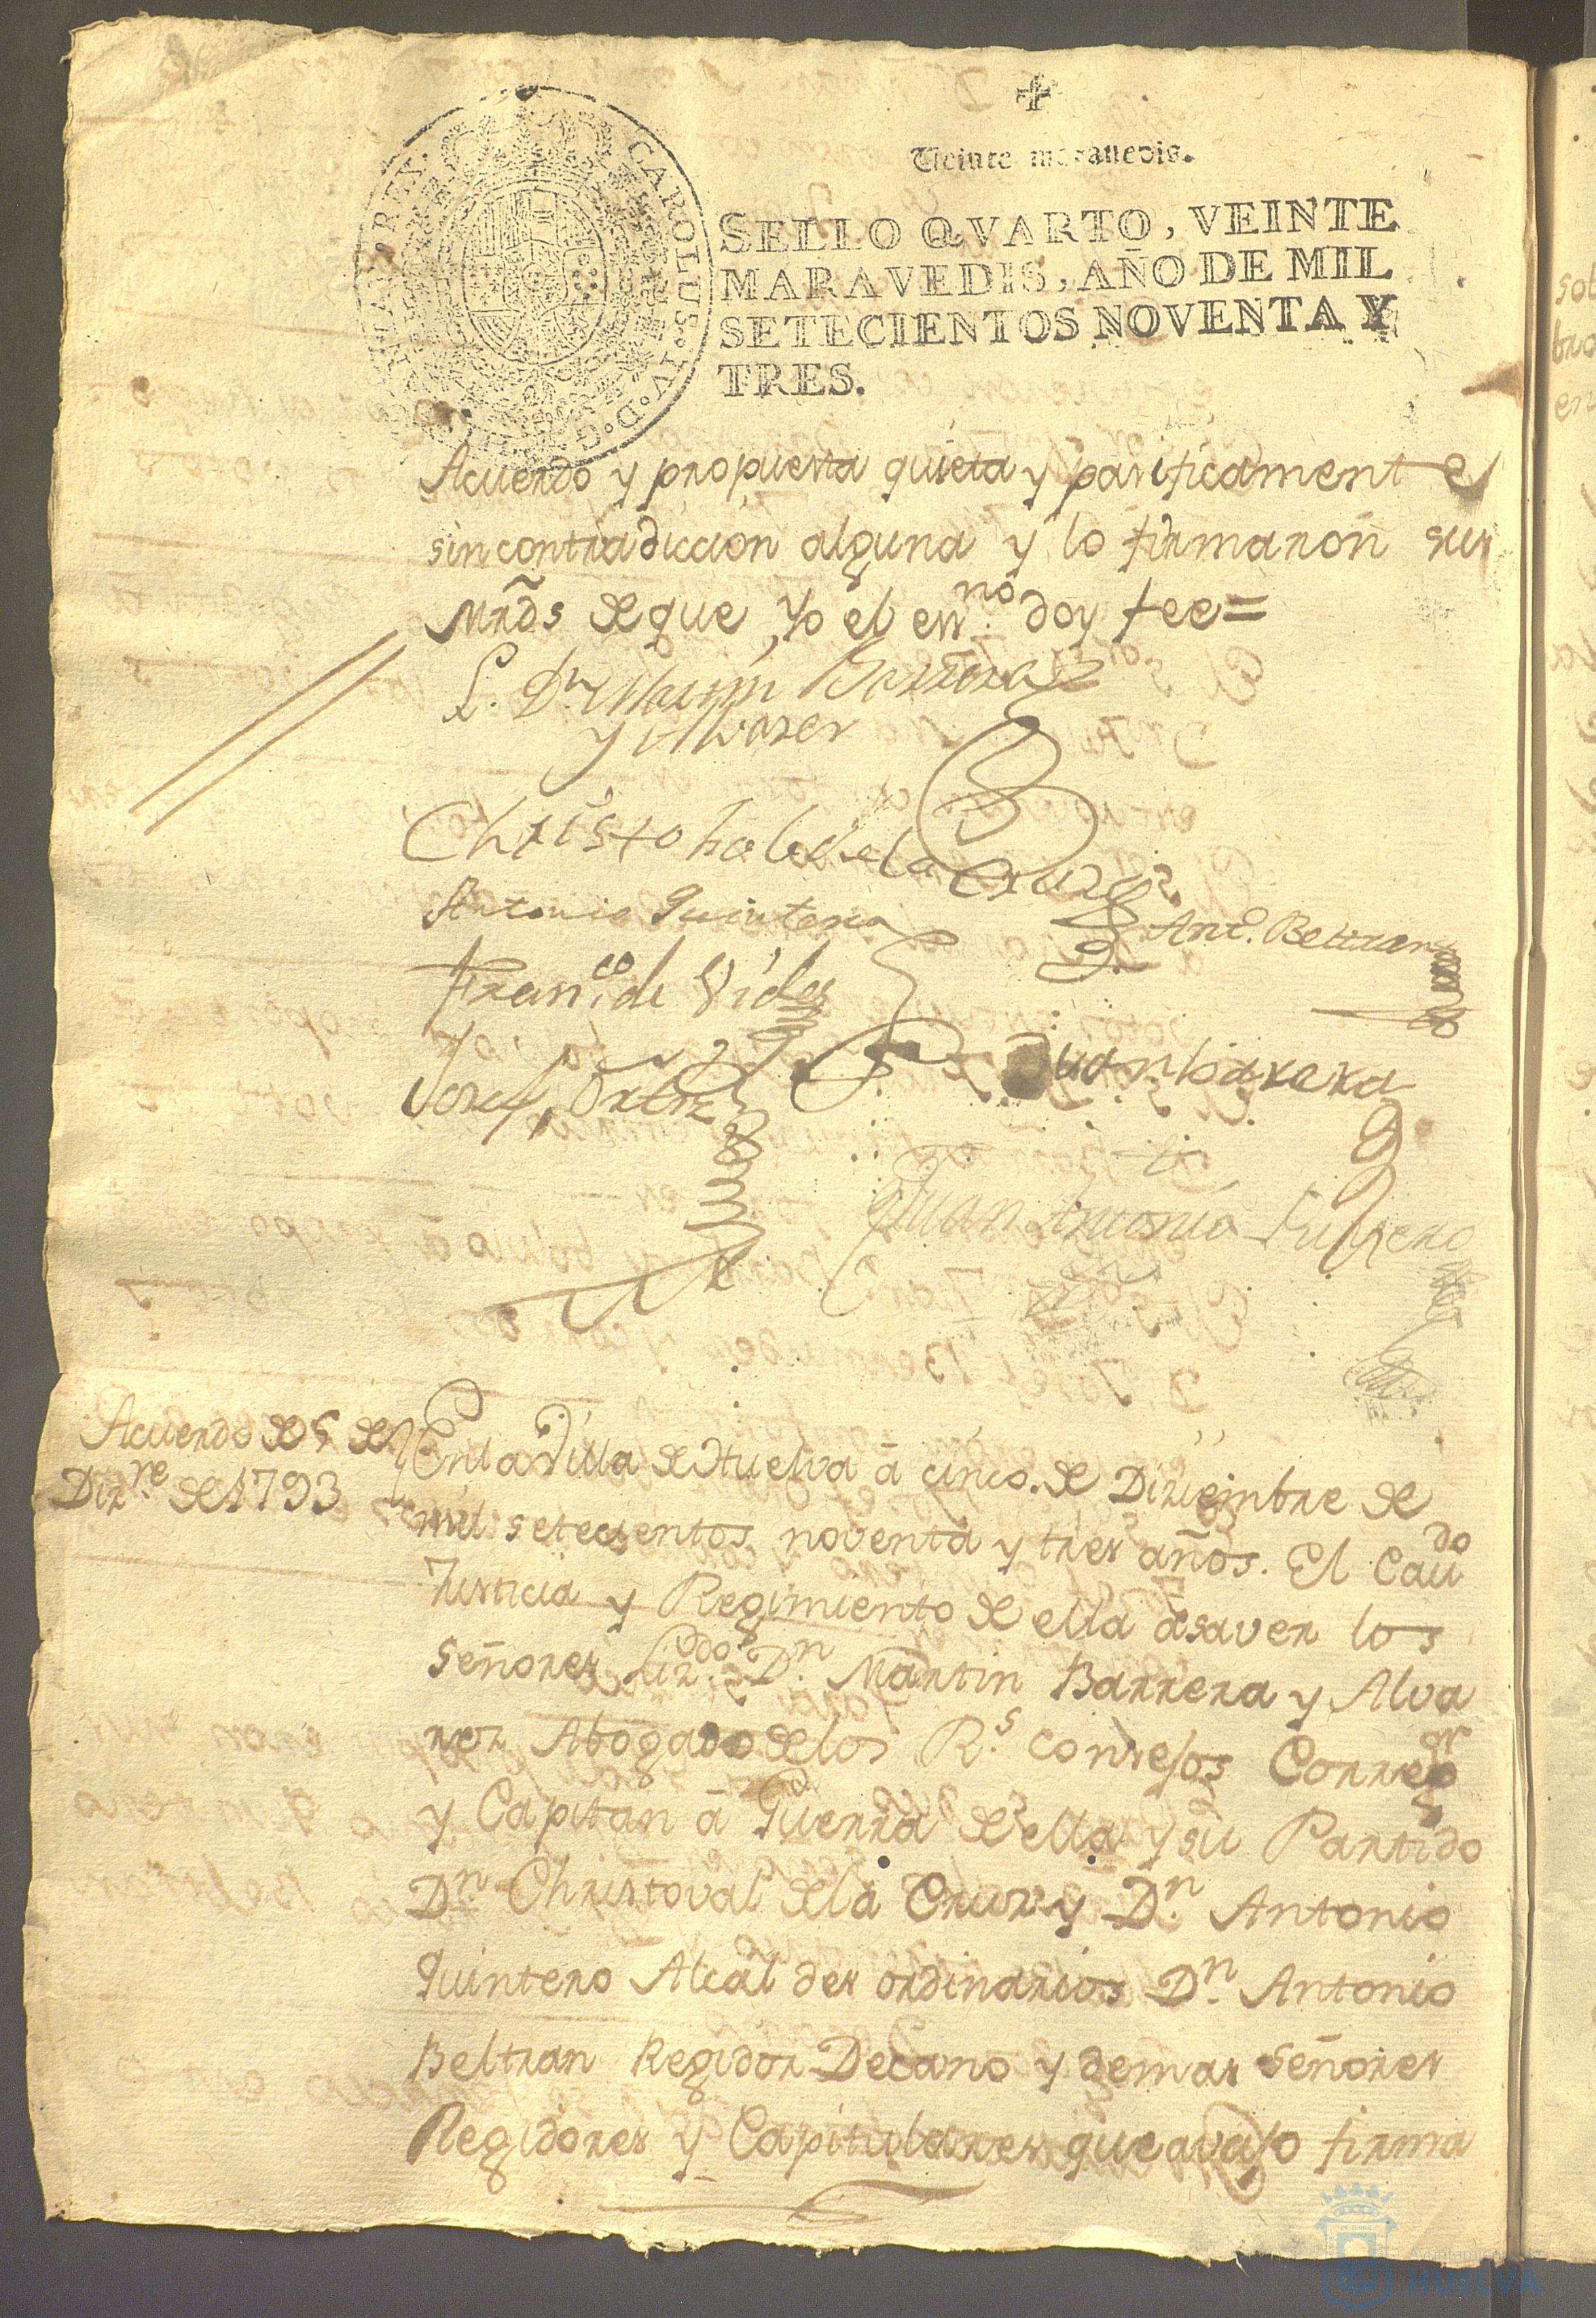 ✠
Veinte maravedis.
CAROLUS·IV·D·G· HISPANIAR·REX·
SELLO QVARTO, VEINTE
MARAVEDIS, AÑO DE MIL
SETECIENTOS NOVENTA Y
TRES.
Acuerdo y propuesta quieta y pasificamente
sin contradiccion alguna y lo firmaron sus
Mrds de que, Yo el essno. doy fee=
L. Dn Martin Barrera
y Alvares
Christobal de la Cruz
Antonio Quintero
Antº. Beltran
Franco. de Vides
Juan Barrera
Josef Ortiz
Juan Antonio
Acuerdo de 5 de
Dizre. de 1793
En la Villa de Huelva á cinco. de Diziembre de
mil setecientos noventa y tres años. El Cavdo
Justicia y Regimiento de ella asaver los
Señores Lizdo. Dn. Martin Barrera y Alva
rez Abogado de los Rs. Consejos Corregor
y Capitan á Guerra de ella y su Partido
Dn. Christoval de la Cruz y Dn. Antonio
Quintero Alcaldes ordinarios Dn. Antonio
Beltran Regidor Decano y demas Señores
Regidores y Capitulares que avajo firma
sob
bra
en
Ayuntamiento de
HUELVA